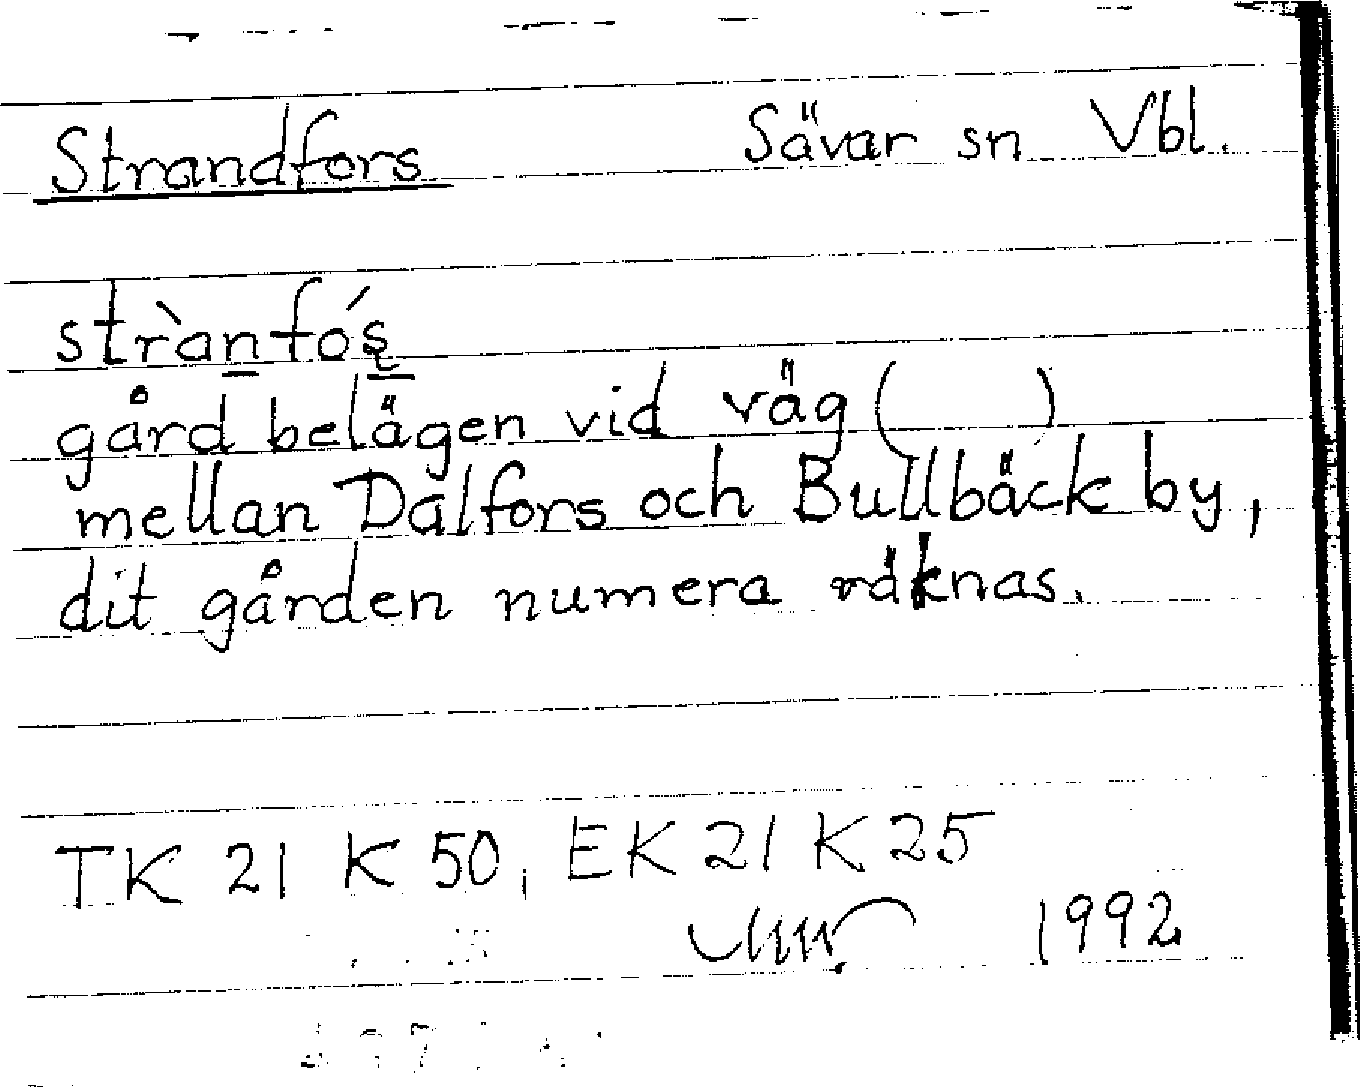 Strandfors Sävar sn Vbl.
stràn̲fó́ş̲
gård belägen vid väg ( )
mellan Dalfors och Bullbäck by,
dit gården numera räknas.
TK 21 K 50, EK 21 K 25
1992